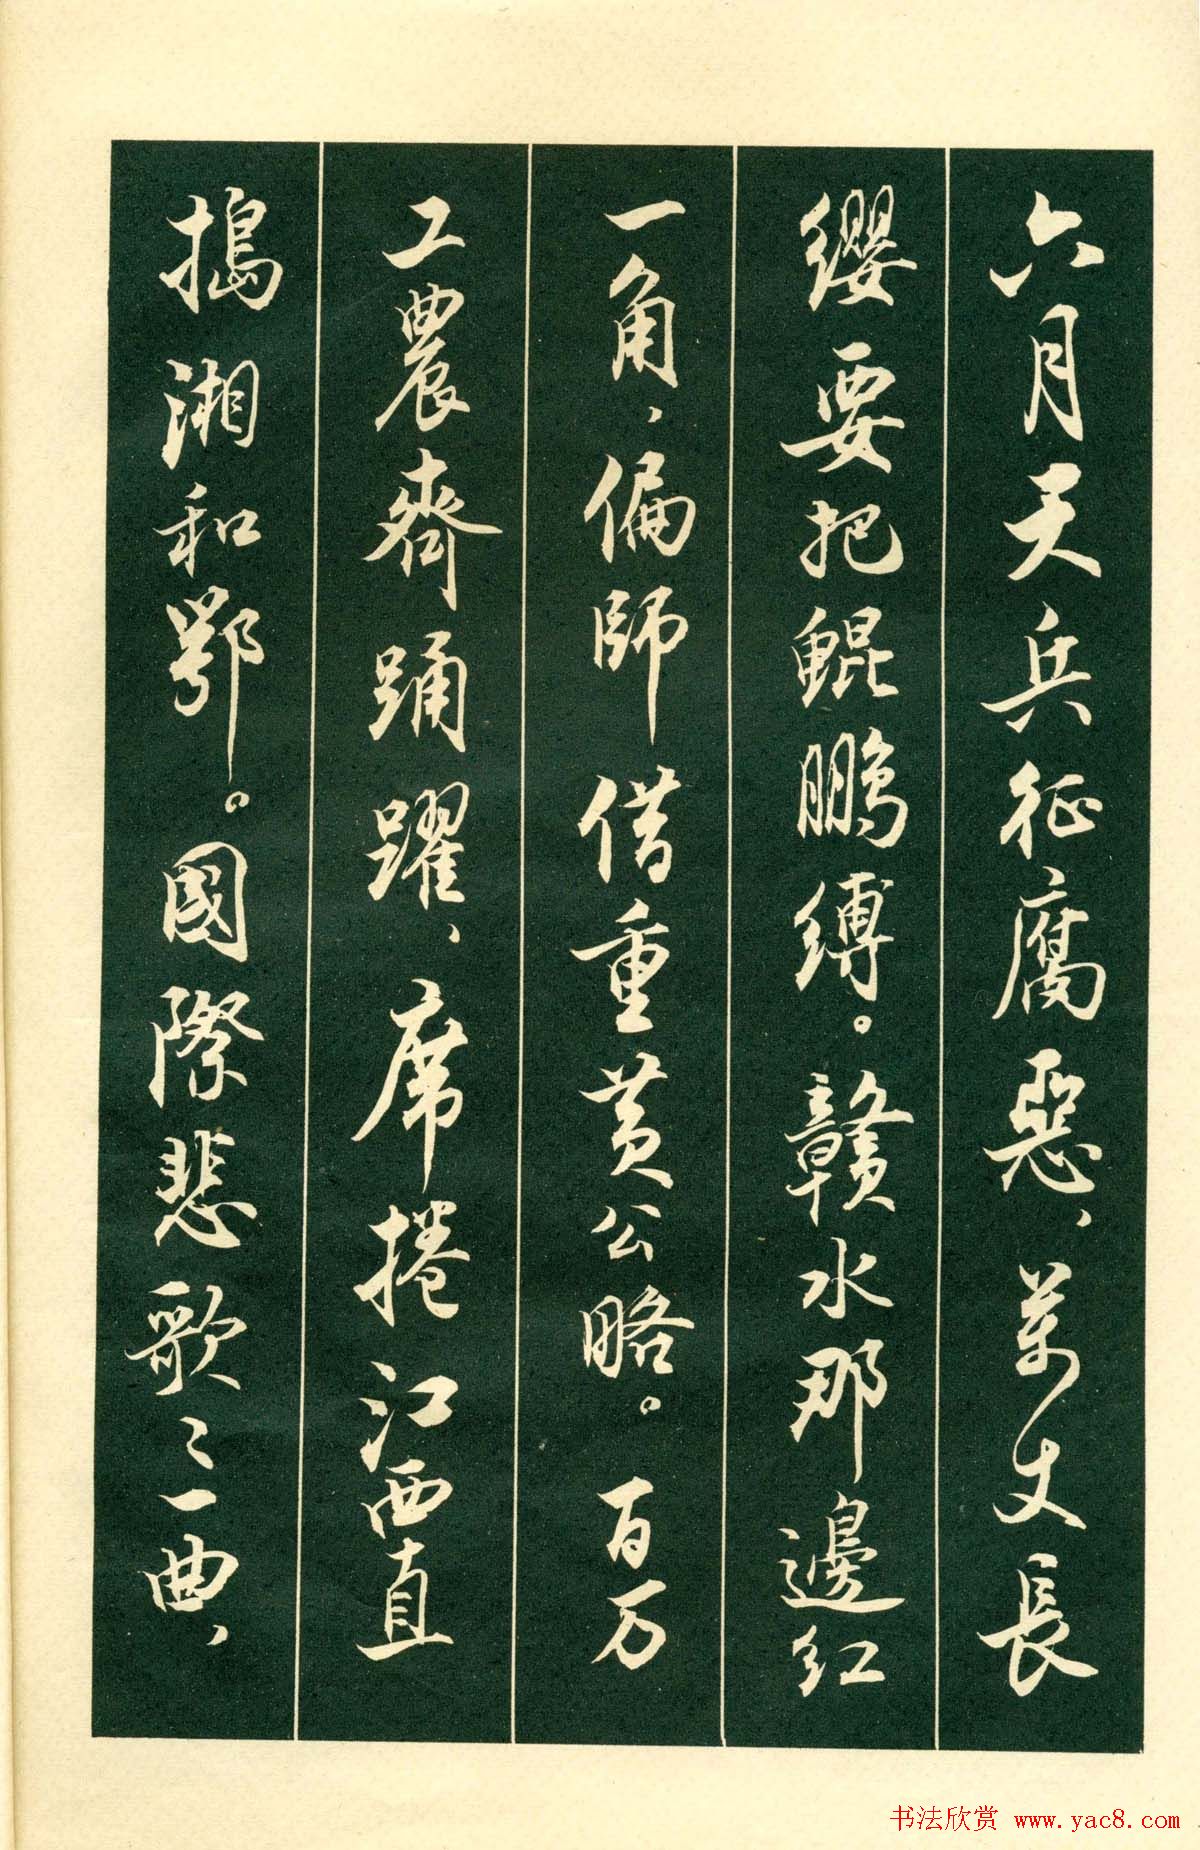 六月天兵征腐惡、萬丈長
纓要把鯤鵬縛。赣水那邊红
一角、偏師借重黄公略。百万
工農齊踊躍、席捲江西直
搗湘和鄂。國際悲歌歌一曲、
书法欣赏 www.yac8.com